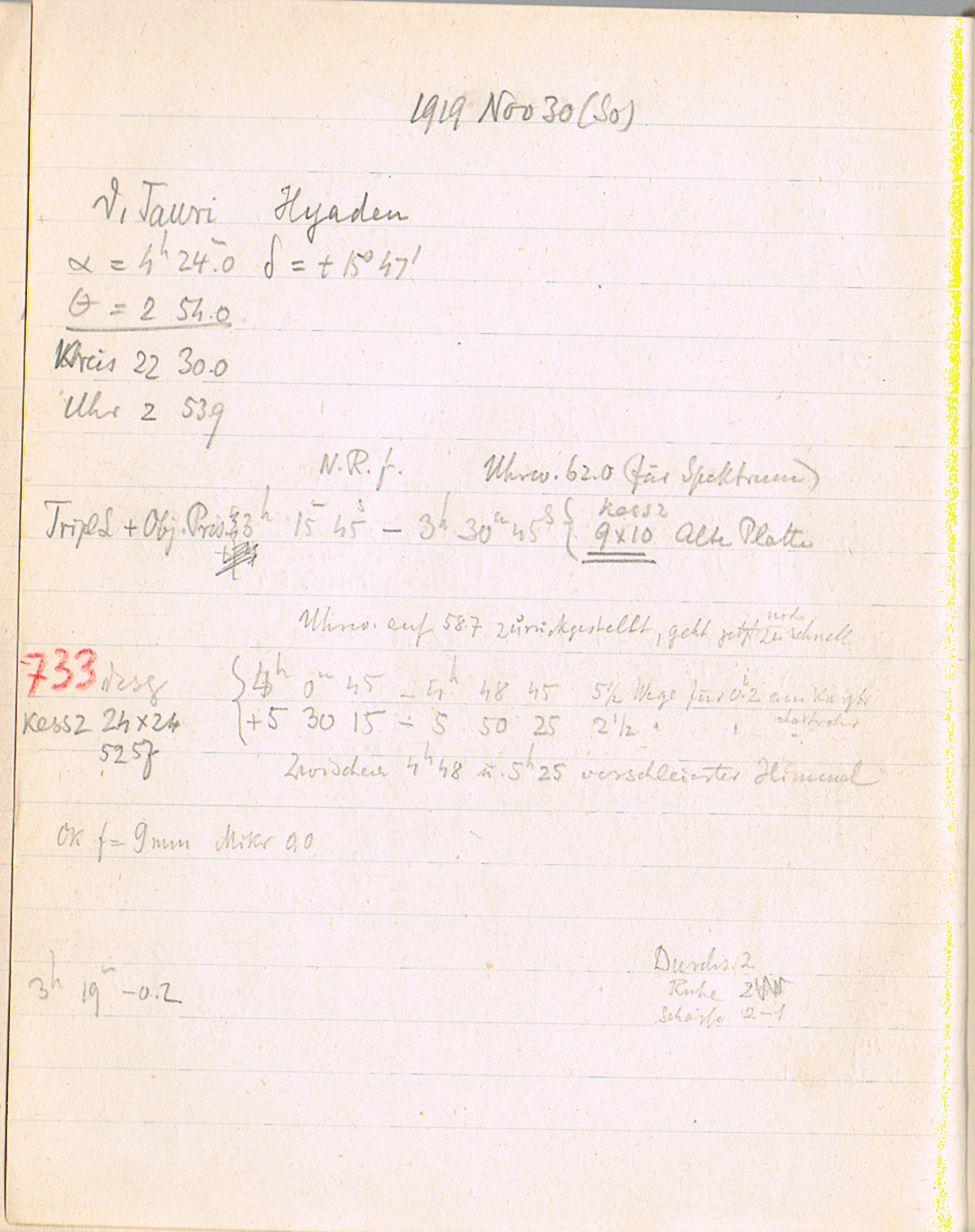 1919 Nov 30 (So)
ϑ₁ Tauri Hyaden
α = 4ʰ 24ᵐ.0 δ = +15° 47'
θ = 2 54.0
Kreis 22 30.0
Uhr 2 53.9
N.R.f. Uhrw. 62.0 (für Spektrum)
Tripl + Obj. Prism 3ʰ 15ᵐ 45ˢ – 3ʰ 30ᵐ 45ˢ { Kass 2
9x10 Alte Platte
Uhrw. auf 58.7 zurückgestellt, geht jetzt noch zu schnell
733
4ʰ 0ᵐ 45 – 4ʰ 48 45 5½ Wege für 0.2 am
Kass 2 24x24 +5 30 15 – 5 50 25 2½ " "
5257
Zwischen 4ʰ48 u. 5ʰ25 verschleierter Himmel
Ok f = 9mm Mikr 0.0
Durchs. 2
3ʰ 19ᵐ –0.2 Ruhe 2
Schärfe 2–1